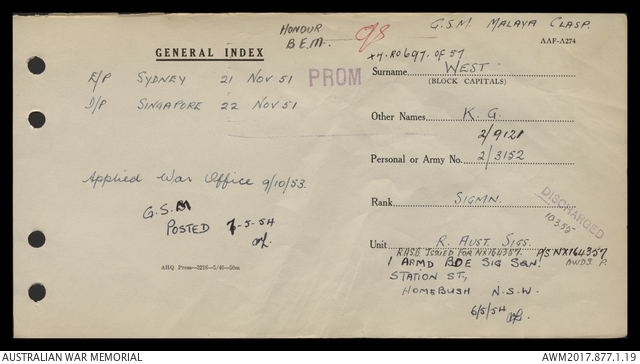 HONOUR
B.E.M.
O/S
G.S.M. MALAYA CLASP.
GENERAL INDEX
AAF-A274
X4. RO697. OF 57
E/P SYDNEY 21 NOV 51
PROM
Surname WEST
(BLOCK CAPITALS)
D/P SINGAPORE 22 NOV 51
Other Names K. G.
2/9121
Personal or Army No. 2/3152
Applied War Office 9/10/53.
Rank SIGMN.
DISCHARGED
10355
G.S.M
POSTED 7-5-54
Unit R. AUST SIGS.
RASB ISSUED FOR NX164357. P/S NX164357
AWDS P.
AHQ Press—3216—5/46—50m
1 ARMD BDE SIG SQN.
STATION ST,
HOMEBUSH N.S.W.
6/5/54
AUSTRALIAN WAR MEMORIAL
AWM2017.877.1.19